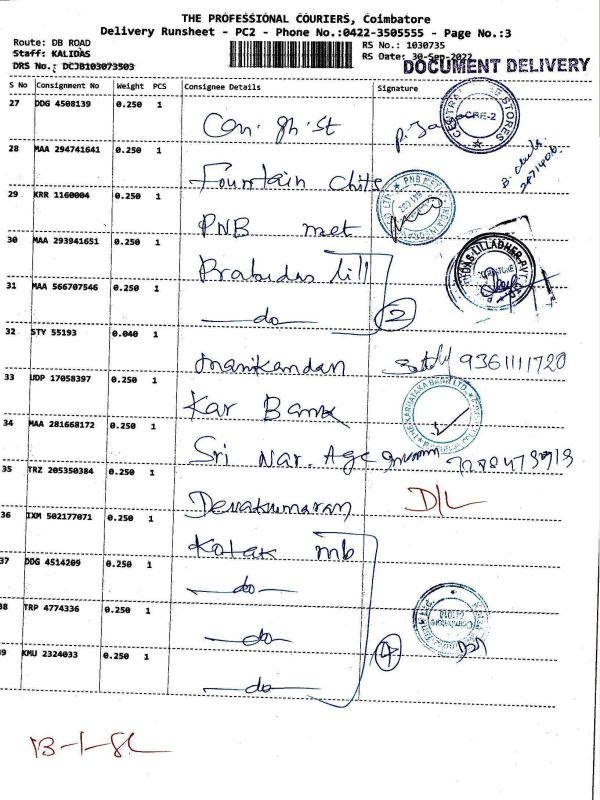 THE PROFESSIONAL COURIERS, Coimbatore
Delivery Runsheet - PC2 - Phone No.:0422-3505555 - Page No.:3
Route: DB ROAD
Staff: KALIDAS
DRS No.: DCJB103073503
RS No.: 1030735
RS Date: 30-Sep-2022
DOCUMENT DELIVERY
S No Consignment No Weight PCS Consignee Details Signature
27 DDG 4508139 0.250 1 Con. gh. st
28 MAA 294741641 0.250 1 Fountain chits
29 KRR 1160004 0.250 1 PNB met
30 MAA 293941651 0.250 1 Prabudas lill
31 MAA 566707546 0.250 1 do 2
32 STY 55193 0.040 1 manikandan 9361111720
33 UDP 17058397 0.250 1 Kar Bank
34 MAA 281668172 0.250 1 Sri Nar. Age
35 TRZ 205350384 0.250 1 Devakumaran D/L
36 IXM 502177071 0.250 1 Kotak mb
37 DDG 4514209 0.250 1 do
38 TRP 4774336 0.250 1 do
39 KMU 2324033 0.250 1 do 4
13-1-SL